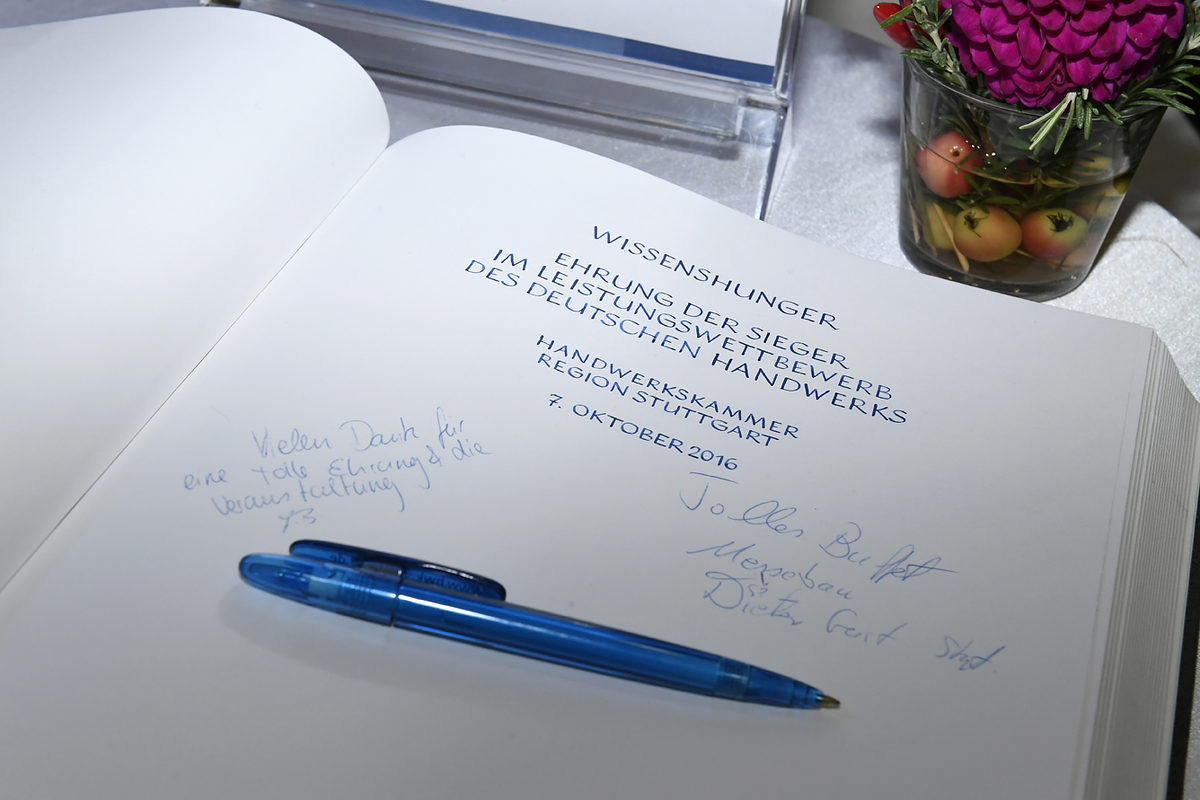 WISSENSHUNGER
EHRUNG DER SIEGER
IM LEISTUNGSWETTBEWERB
DES DEUTSCHEN HANDWERKS
HANDWERKSKAMMER
REGION STUTTGART
7. OKTOBER 2016
Vielen Dank für
eine tolle Ehrung & die
Veranstaltung
Tolles Buffet
Messebau
Dieter